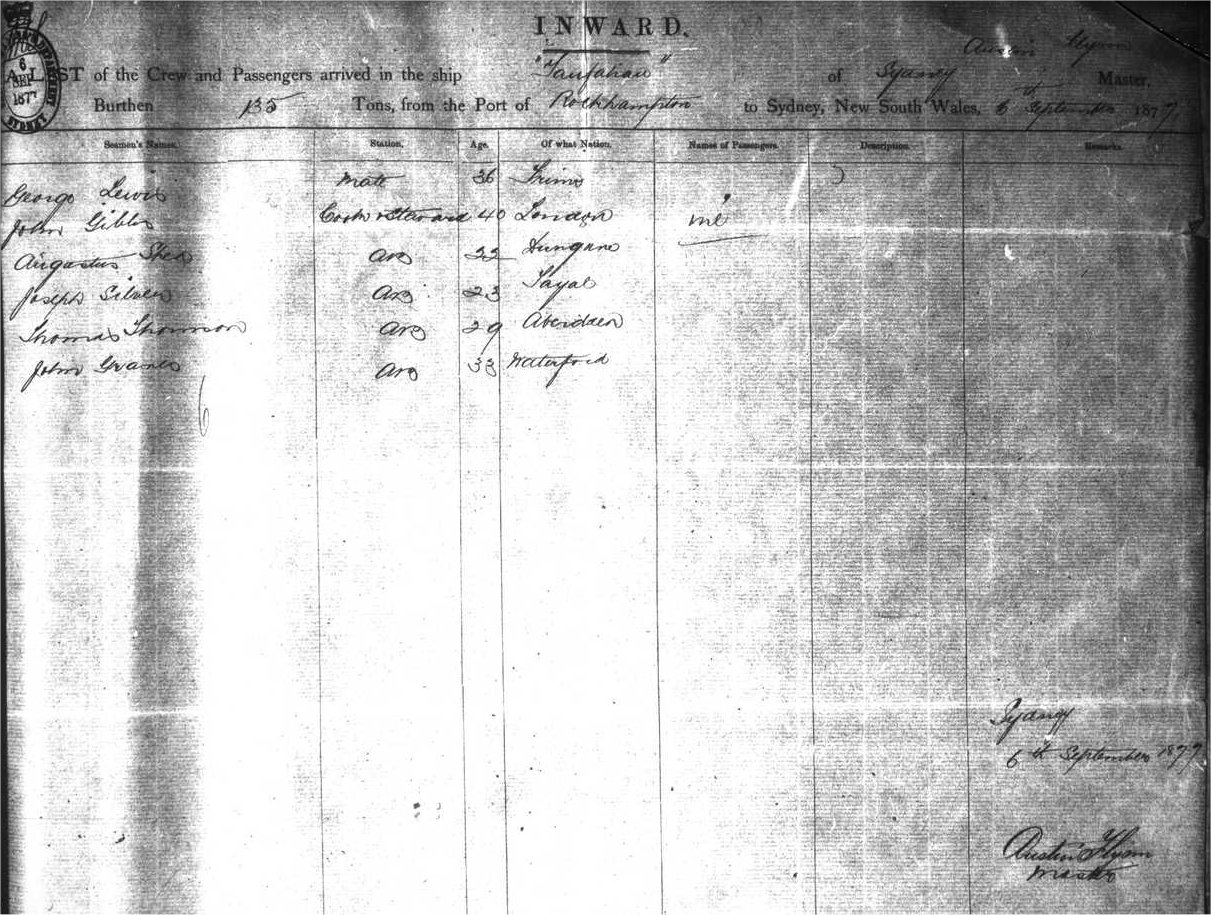 INWARD.
A LIST of the Crew and Passengers arrived in the ship of Sydney Austin Master.
Burthen 135 Tons, from the Port of Rockhampton to Sydney, New South Wales, 6th September 1877.
Seamen's Names. Station. Age. Of what Nation. Names of Passengers. Description. Remarks.
George Lewis Mate 36
John Gibbs Cook & Steward 40 London nil
Augustus Shea AB 22
Joseph Silven AB 23 Fayal
Thomas Thomson AB 29 Aberdeen
John AB 33 Waterford
6
Sydney
6th September 1877
Austin
Master